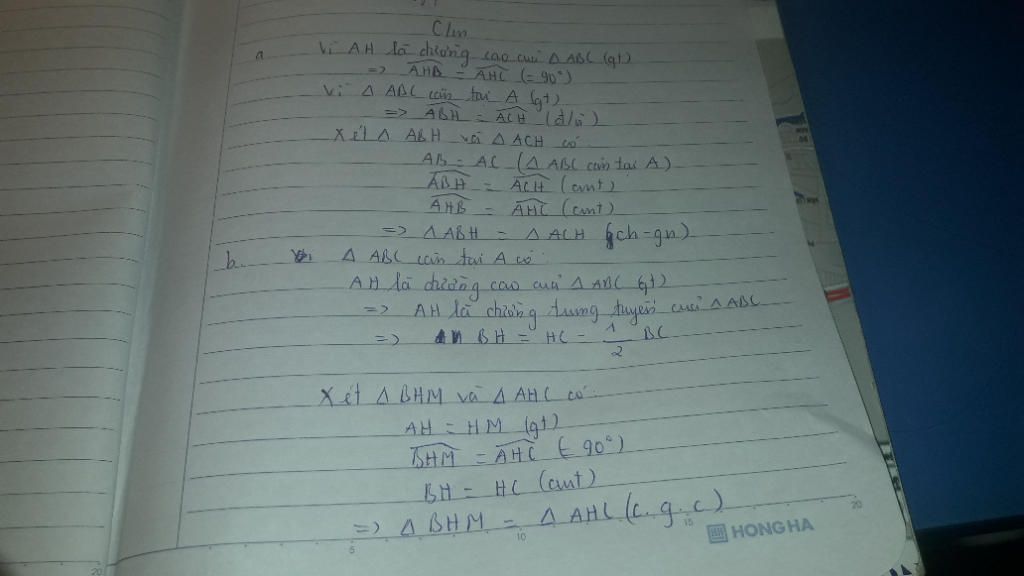 C/m
a Vì AH là đường cao của Δ ABC (gt)
=> AHB = AHC (= 90°)
Vì Δ ABC cân tại A (gt)
=> ABH = ACH (đ/lí)
Xét Δ ABH và Δ ACH có:
AB = AC (Δ ABC cân tại A)
ABH = ACH (cmt)
AHB = AHC (cmt)
=> Δ ABH = Δ ACH (ch-gn)
b. Δ ABC cân tại A có:
AH là đường cao của Δ ABC (gt)
=> AH là đường trung tuyến của Δ ABC
=> BH = HC = 1/2 BC
Xét Δ BHM và Δ AHC có:
AH = HM (gt)
BHM = AHC (= 90°)
BH = HC (cmt)
=> Δ BHM = Δ AHC (c.g.c)
5 10 15 20
HONG HA
20